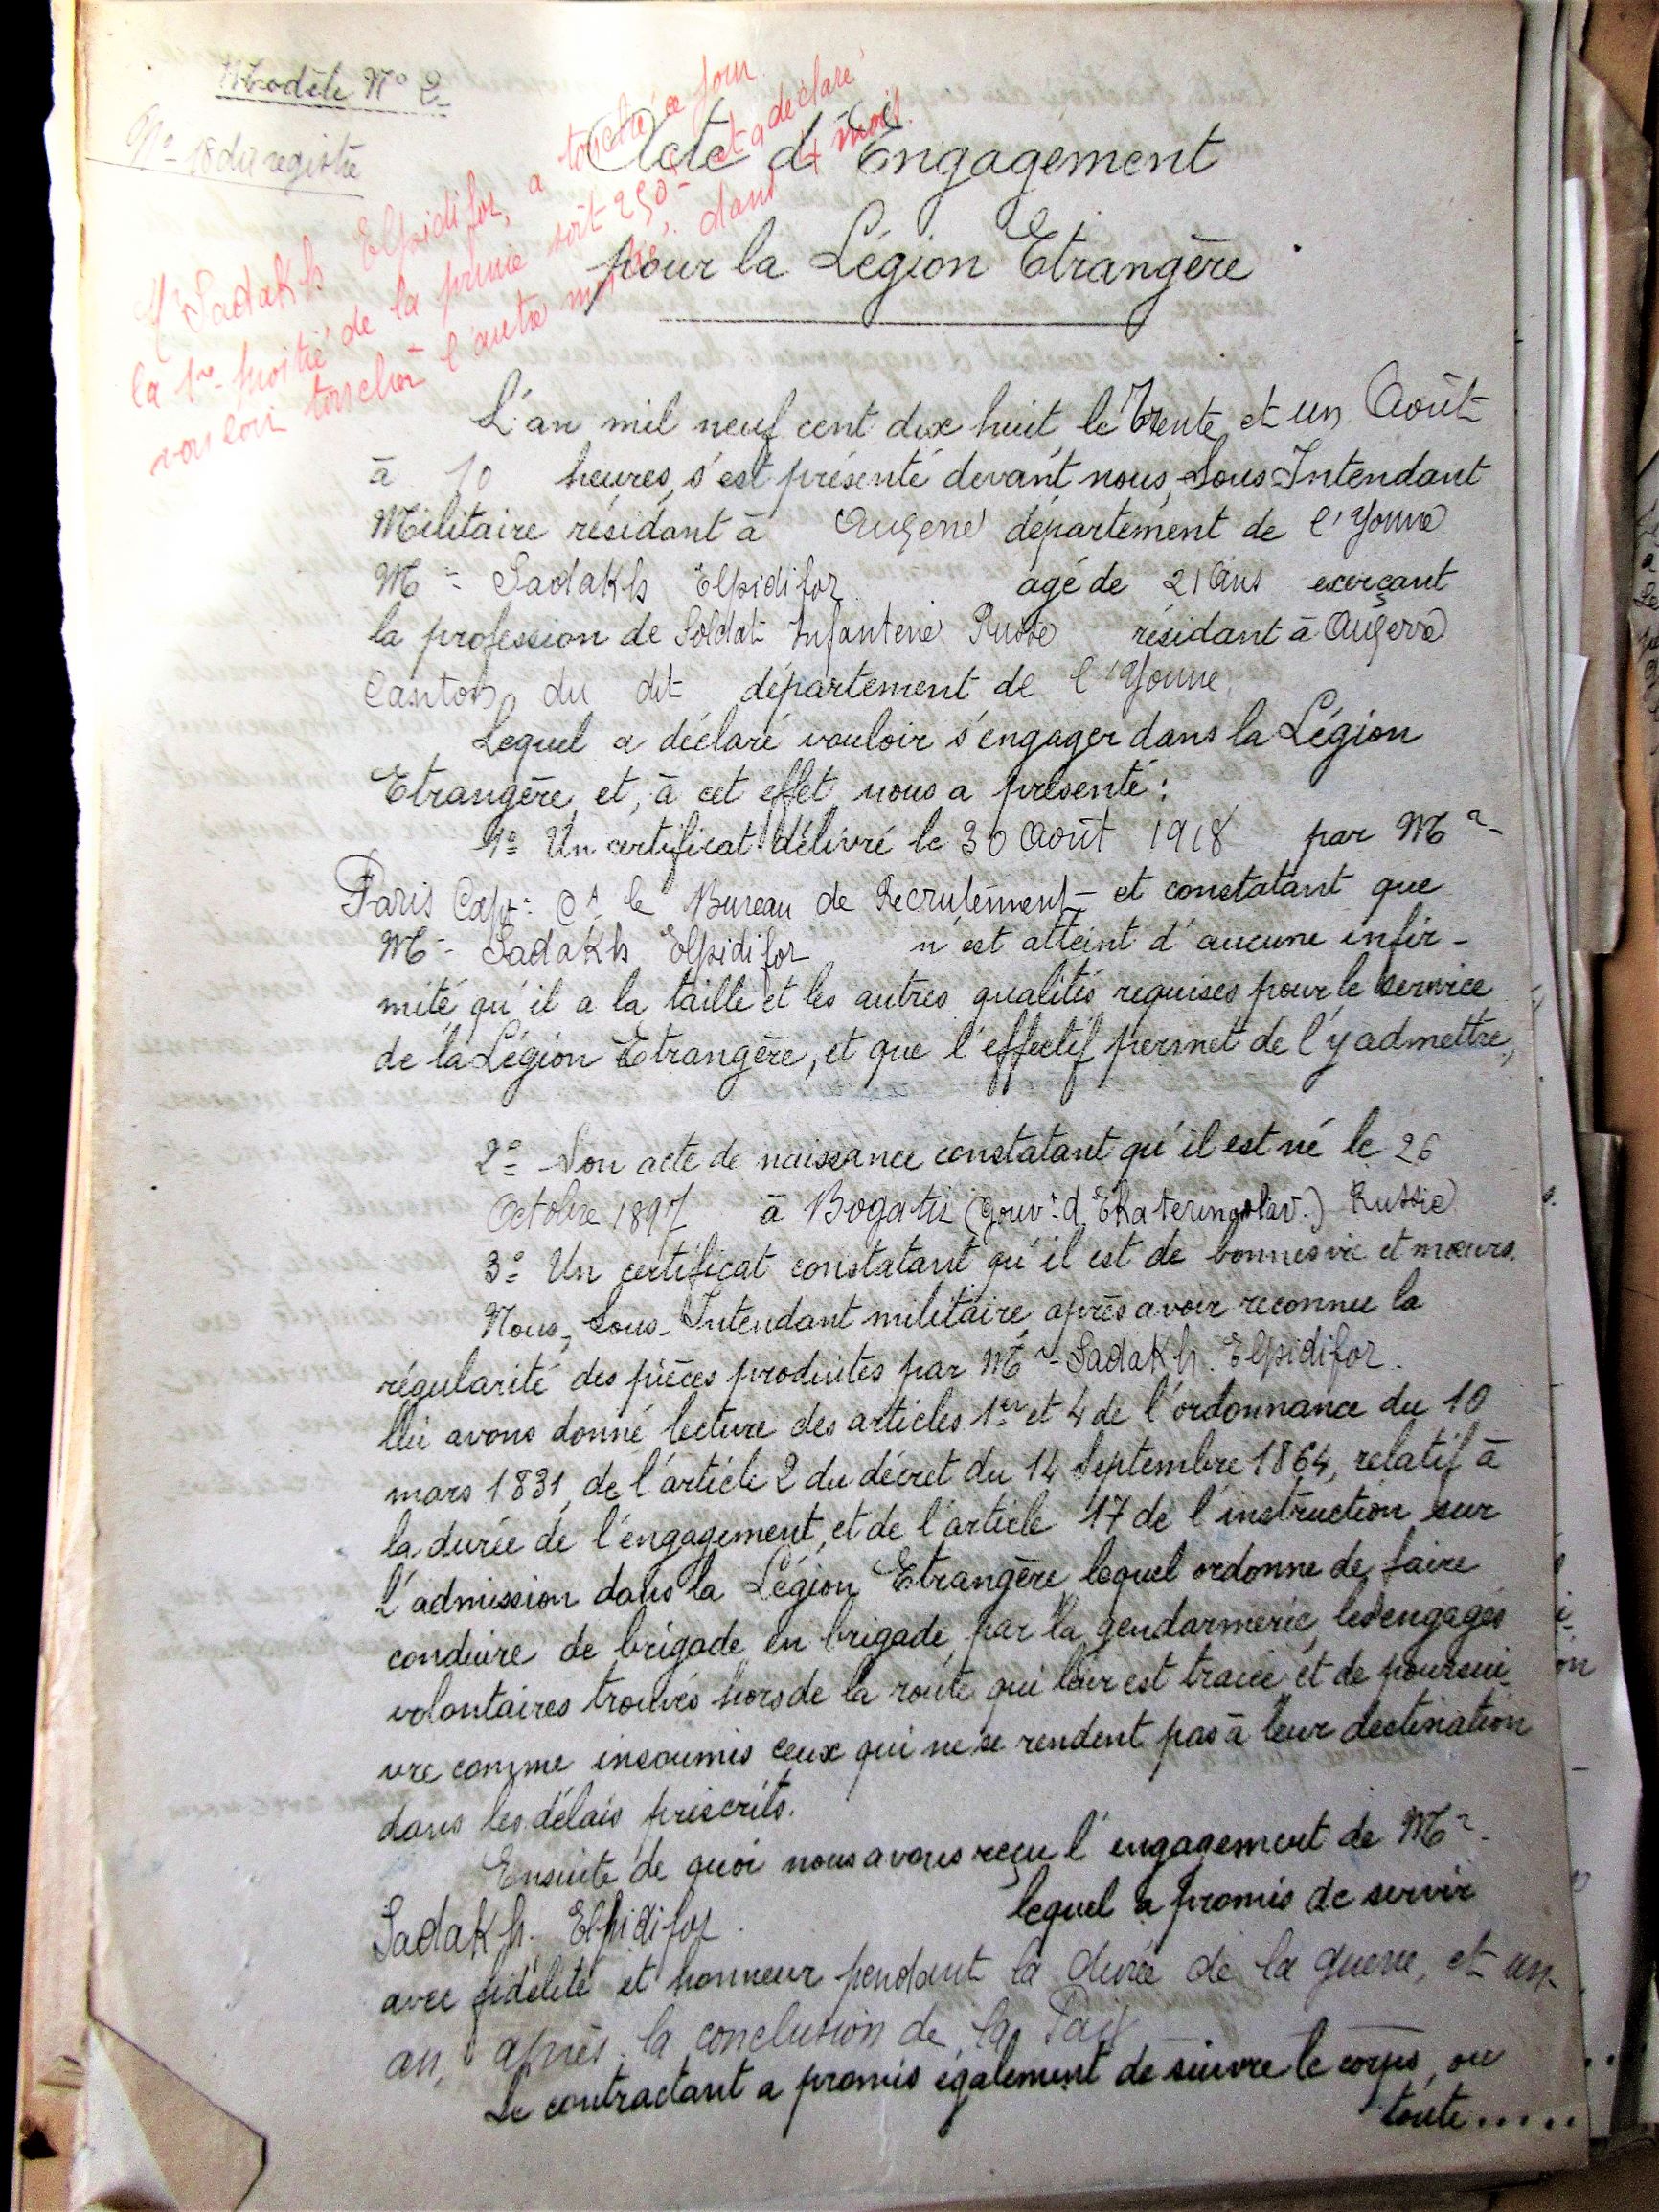 Modèle N° 2
N° 18 du registre
Mr Sadakh Elpidifor, a touché ce jour
la 1re moitié de la prime soit 250f et a déclaré
vouloir toucher l'autre moitié, dans 4 mois.
Acte d'Engagement
pour la Légion Etrangère
L'an mil neuf cent dix huit le Trente et un Août
à 10 heures, s'est présenté devant nous, Sous Intendant
Militaire résidant à Auxerre département de l'Yonne
Mr Sadakh Elpidifor agé de 21 Ans exerçant
la profession de Soldat Infanterie Russe résidant à Auxerre
Canton du dit département de l'Yonne
Lequel a déclaré vouloir s'engager dans la Légion
Etrangère et, à cet effet nous a présenté :
1° Un certificat délivré le 30 Août 1918 par Mr
Paris Capne Ct le Bureau de Recrutement et constatant que
Mr Sadakh Elpidifor n'est atteint d'aucune infir-
mité qu'il a la taille et les autres qualités requises pour le service
de la Légion Etrangère, et que l'effectif permet de l'y admettre,
2° Son acte de naissance constatant qu'il est né le 26
Octobre 1897 à Bogatii (gouvt d'Ekaterinoslav.) Russie
3° Un certificat constatant qu'il est de bonnes vie et mœurs.
Nous, Sous-Intendant militaire, après avoir reconnu la
régularité des pièces produites par Mr Sadakh. Elpidifor.
lui avons donné lecture des articles 1er et 4 de l'ordonnance du 10
mars 1831, de l'article 2 du décret du 14 Septembre 1864, relatif à
la durée de l'engagement, et de l'article 17 de l'instruction sur
l'admission dans la Légion Etrangère lequel ordonne de faire
conduire de brigade en brigade, par la gendarmerie, les engagés
volontaires trouvés hors de la route qui leur est tracée et de poursui-
vre comme insoumis ceux qui ne se rendent pas à leur destination
dans les délais prescrits.
Ensuite de quoi nous avons reçu l'engagement de Mr
Sadakh. Elpidifor. lequel a promis de servir
avec fidélité et honneur pendant la durée de la guerre, et un
an, après la conclusion de la Paix
Le contractant a promis également de suivre le corps, ou
toute.....